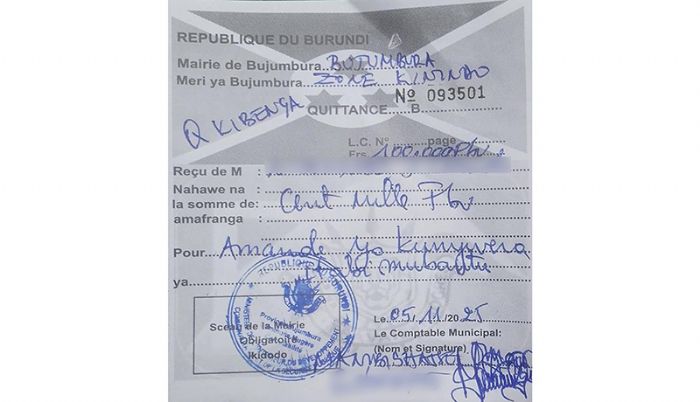 REPUBLIQUE DU BURUNDI
Mairie de Bujumbura BUJUMBURA
Meri ya Bujumbura ZONE KININDO
Q KIBENGA
Nº 093501
QUITTANCE B
L.C. Nº page
Frs 100.000Fbu
Reçu de M :
Nahawe na :
la somme de: Cent mille Fbu
amafranga :
Pour Amande yo kunywera
mubantu
ya
REPUBLIQUE DU BURUNDI
Sceau de la Mairie
Obligatoire
Ikidodo
Le 05/11/2025
Le Comptable Municipal:
(Nom et Signature)